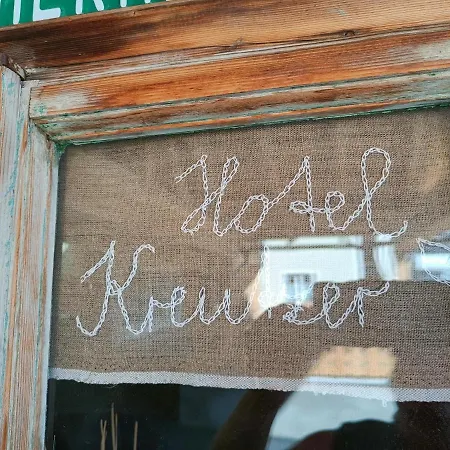 Hotel
Kreutzer